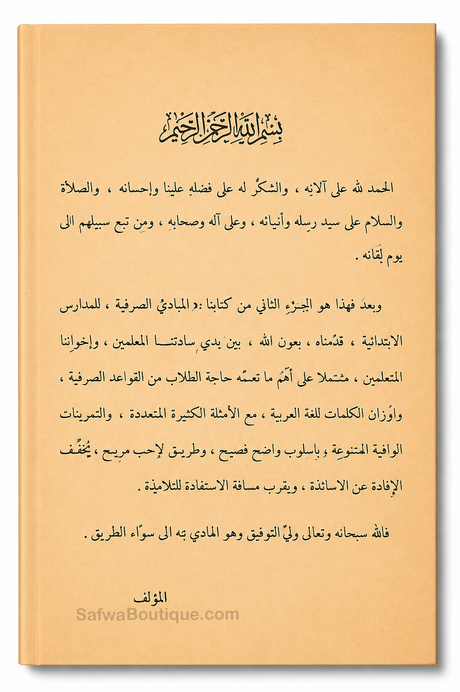 بِسْمِ اللَّهِ الرَّحْمَنِ الرَّحِيمِ
الحمد لله على آلائه ، والشكرُ له على فضلهِ علينا وإحسانه ، والصلاة
والسلام على سيد رسله وأنبيائه ، وعلى آله وصحابهِ ، ومن تبع سبيلهم الى
يوم لقائه .
وبعد فهذا هو الجزء الثاني من كتابنا :« المبادئ الصرفية ، للمدارس
الابتدائية ، قدّمناه ، بعون الله ، بين يدي سادتنا المعلمين ، وإخواننا
المتعلمين ، مشتملا على أهمّ ما تعمّه حاجة الطلاب من القواعد الصرفية ،
واوزان الكلمات للغة العربية ، مع الأمثلة الكثيرة المتعددة ، والتمرينات
الوافية المتنوعة ، بأسلوب واضح فصيح ، وطريق لاحب مريح ، يُخفّف
الإفادة عن الاساتذة ، ويقرب مسافة الاستفادة للتلامِذة .
فالله سبحانه وتعالى وليّ التوفيق وهو الهادي بمنّه الى سواء الطريق .
المؤلف
SafwaBoutique.com